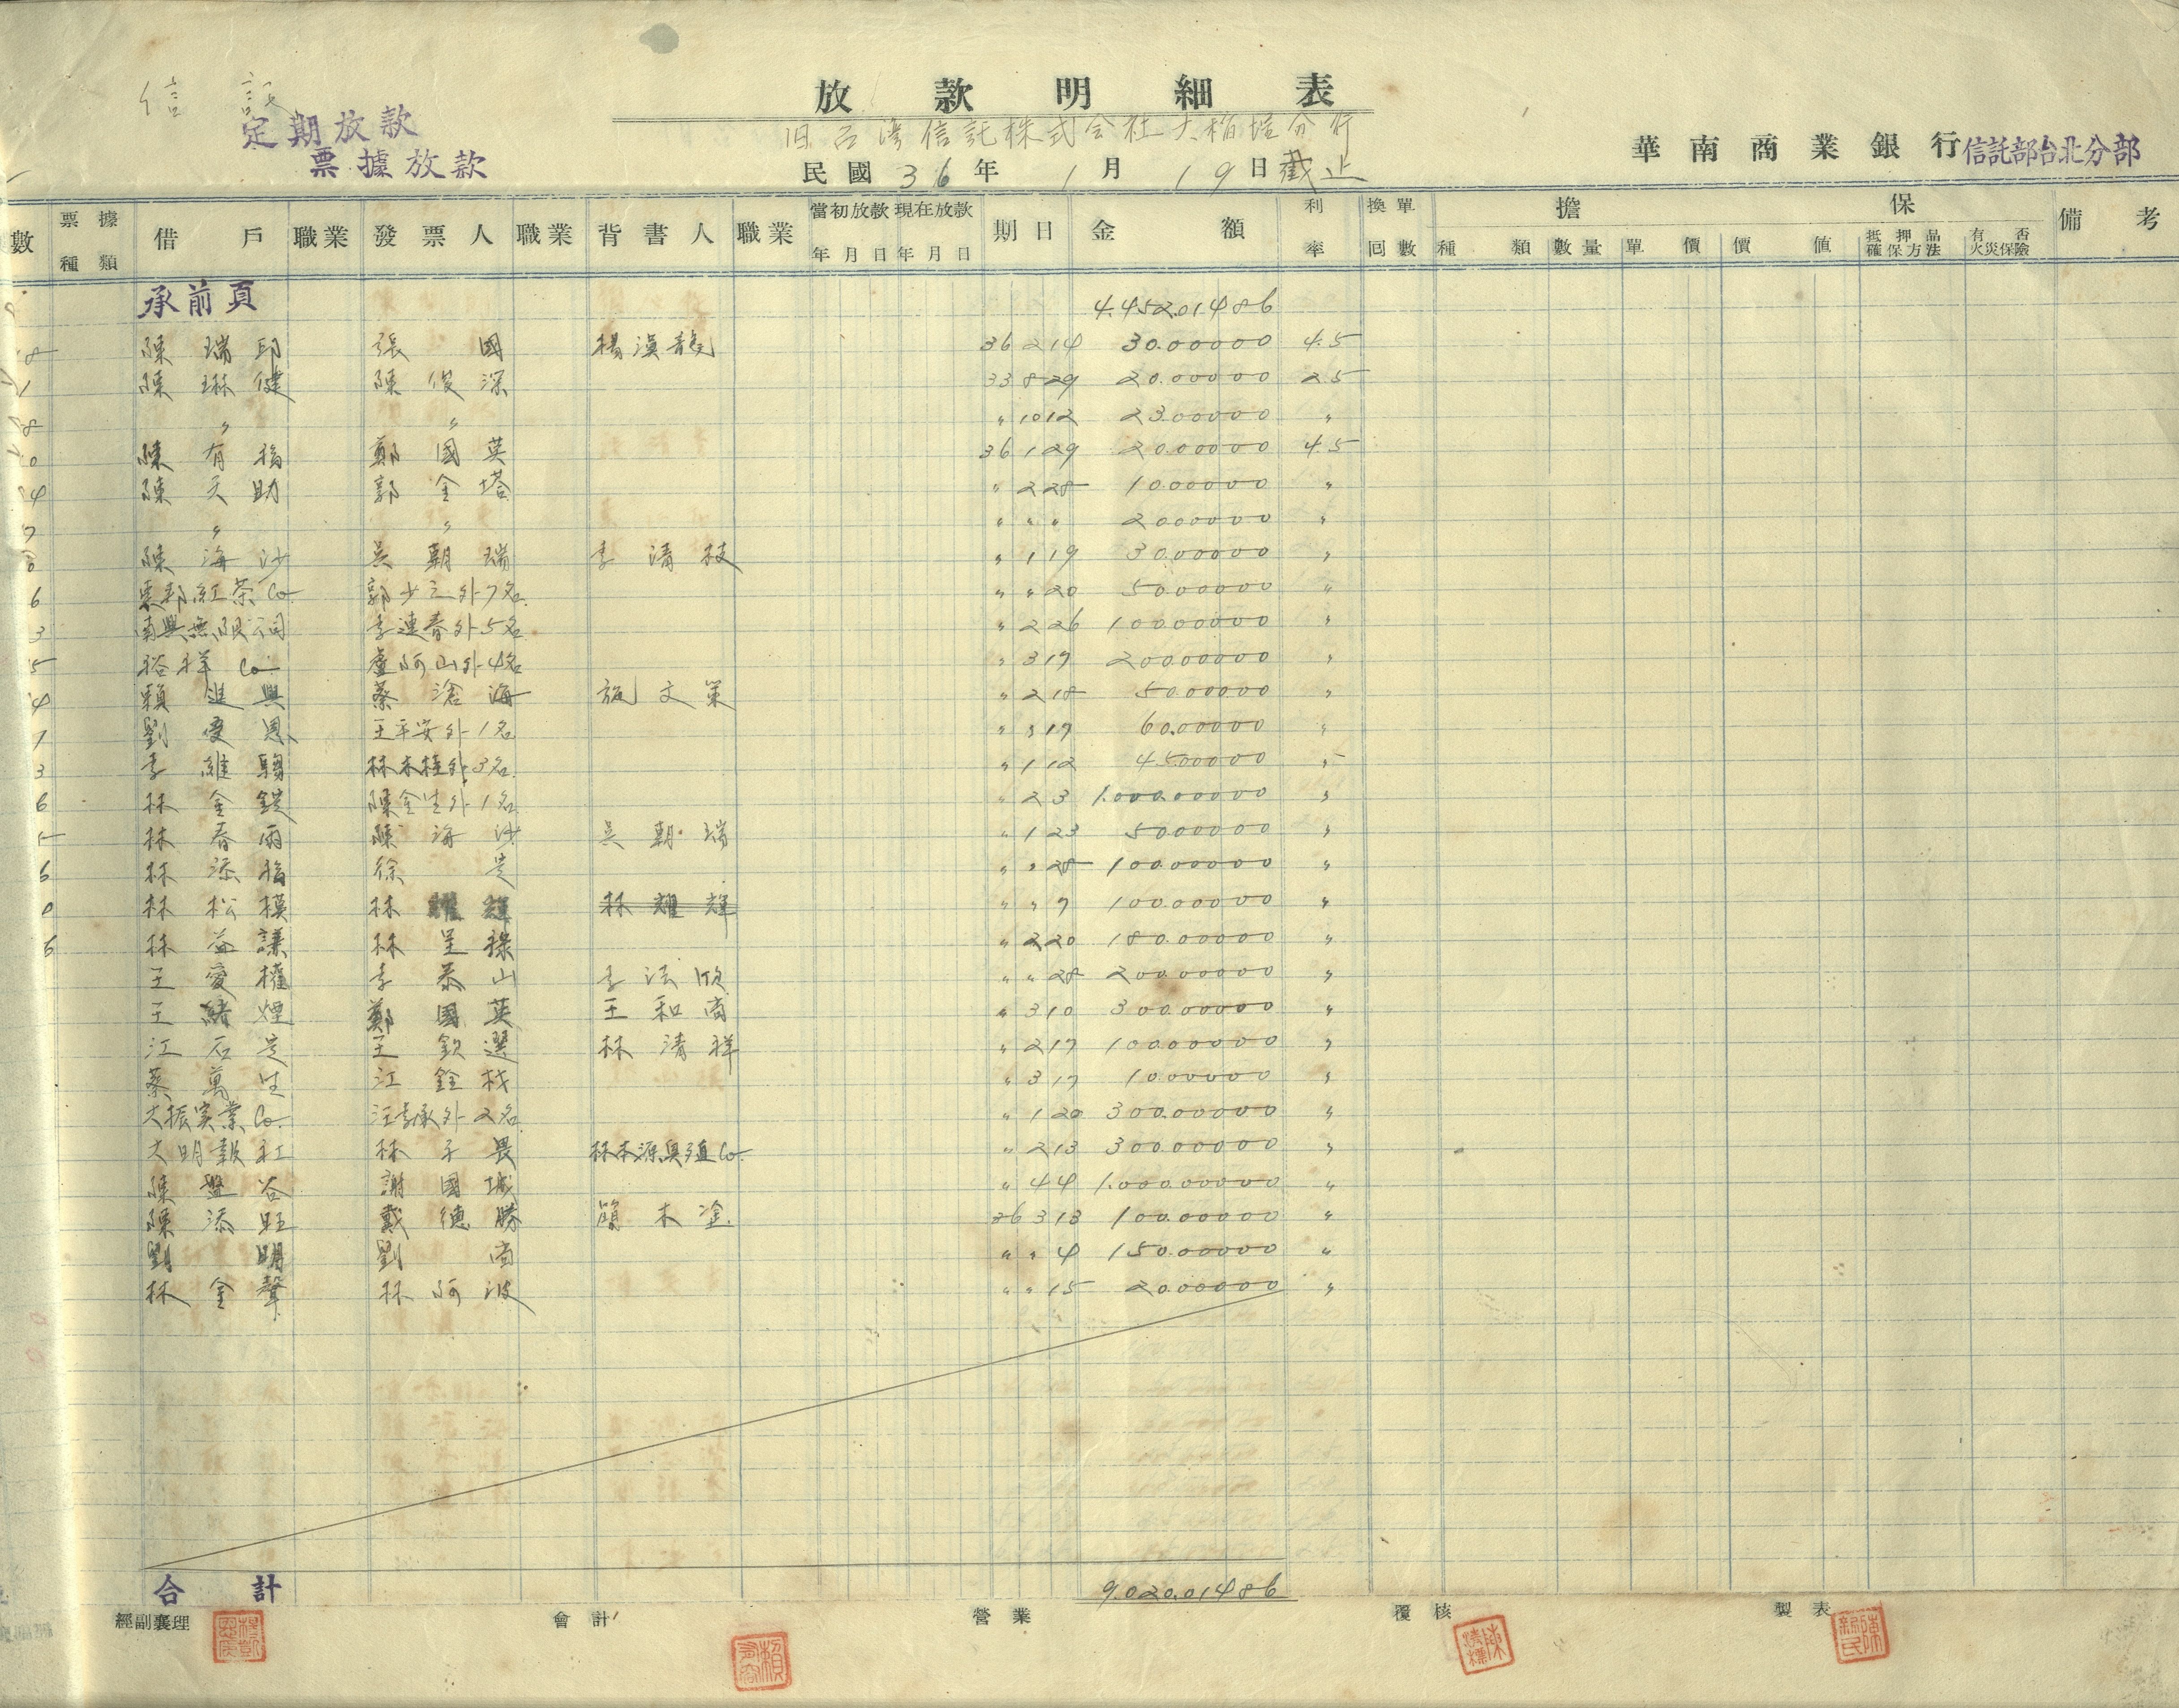 信託
放款明細表
定期放款
票據放款
旧台湾信託株式会社大稻埕分行
民國36年1月19日截止
華南商業銀行信託部台北分部
數 票據種類 借戶 職業 發票人 職業 背書人 職業 當初放款年月日 現在放款年月日 期日 金額 利率 換單回數 擔保 種類 數量 單價 價值 抵押品確保方法 有否火災保險 備考
承前頁 4.452.01486
8 陳瑞邱 張國 楊漢龍 36 2 14 30.00000 4.5
1 陳琳健 陳俊深 33 8 29 20.00000 2.5
8 〃 〃 〃 10 12 23.00000 〃
0 陳有福 鄭國英 36 1 29 20.00000 4.5
4 陳天助 郭金塔 〃 2 28 10.00000 〃
7 〃 〃 〃 〃 〃 20.00000 〃
陳海沙 吳朝瑞 李清枝 〃 1 19 30.00000 〃
6 東邦紅茶Co. 郭少三外7名. 〃 〃 20 50.00000 〃
3 南興無限公司 李連春外5名 〃 2 26 100.00000 〃
5 裕祥Co. 盧阿山外4名 〃 3 17 200.00000 〃
4 賴進興 蔡滄海 施文策 〃 2 18 50.00000 〃
7 劉愛恩 王平安外1名 〃 3 17 60.00000 〃
3 李維 林木桂外3名. 〃 1 12 45.00000 〃
6 林金鎚 陳金生外1名. 〃 2 3 1.000.00000 〃
林春雨 陳海沙 吳朝瑞 〃 1 23 50.00000 〃
6 林添福 徐是 〃 〃 28 100.00000 〃
0 林松模 林耀輝 林耀輝 〃 〃 7 100.00000 〃
6 林益謙 林呈祿 〃 2 20 180.00000 〃
王愛權 李泰山 李法欣 〃 〃 28 200.00000 〃
王緒煙 鄭國英 王和尚 〃 3 10 300.00000 〃
江石定 王欽選 林清祥 〃 2 17 100.00000 〃
蔡萬生 江銓枝 〃 3 17 10.00000 〃
大振实業Co. 汪李承外2名. 〃 1 20 300.00000 〃
大明報社 林子畏 林本源興殖Co. 〃 2 13 300.00000 〃
陳盤谷 謝國城 〃 4 4 1.000.00000 〃
陳添旺 戴德勝 簡木塗. 36 3 13 100.00000 〃
劉明 劉尚 〃 〃 4 150.00000 〃
林金聲 林阿波 〃 〃 15 20.00000 〃
合計 9.020.01486
經副襄理 會計 營業 覆核 製表
陳新民